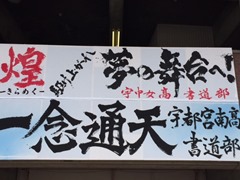 煌
ーきらめくー
駆け上がれ
夢の舞台へ!
宇中女高 書道部
一念通天
宇都宮南高
書道部